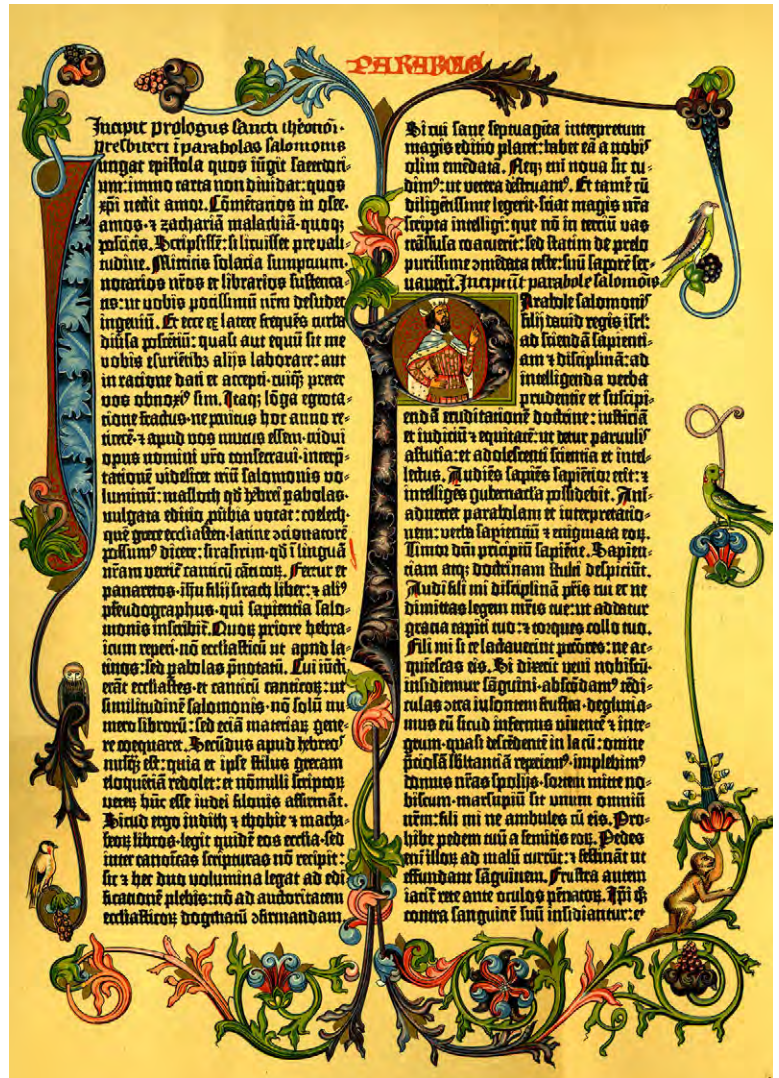 PARABOLE
Incipit prologus sancti iheronimi
presbiteri i parabolas salomonis
Iungat epistola quos iūgit sacerdoti-
um: immo carta non dividat: quos
xp̄i nectit amor. Cōmētarios in osee.
amos. ⁊ zachariā malachiā. quoqꝫ
poscitis. Scripsissē: si licuisset pre vali-
tudine. Mittitis solacia sumptuum.
notarios nr̄os et librarios sustenta-
tis: ut vobis potissimū nr̄m desudet
ingeniū. Et ecce ex latere frequēs turba
diūsa poscētiū: quasi aut equū sit me
vobis esuriētibꝫ alijs laborare: aut
in racione dati et accepti. cuiqꝫ preter
vos obnoxiꝰ sim. Itaqꝫ lōga egrota-
tione fractus. ne penitus hoc anno re-
ticerē ⁊ apud vos mutus essem. tridui
opus nomini vr̄o consecraui. interp̄-
tationē videlicet triū salomonis vo-
luminū: masloth qd̄ hebrei pabolas.
vulgata editio ꝓūbia vocat: coeleth.
quē grece ecclīasten. latine ɔcionatorē
possumꝰ dicere: sirasirim. qd̄ i linguā
nr̄am vertit̄ canticū cāticoꝝ. Fertur et
panaretos. ih̄u filij sirach liber: ⁊ aliꝰ
pseudographus. qui sapientia salo-
monis inscribit̄. Quoꝝ priorē hebra-
icum reperi. nō ecclīasticū ut apud la-
tinos: sed pabolas p̄notatū. Cui iūcti
erāt ecclīastes. et canticū canticoꝝ: ut
similitudinē salomonis. nō solū nu-
mero librorū: sed eciā materiaꝝ gene-
re coequaret. Secūdus apud hebreoꝰ
nusqꝫ est: quia et ipse stilus grecam
eloquētiā redolet: et nōnulli scriptoꝝ
veterꝫ hūc esse iudei filonis affirmāt.
Sicud ergo iudith ⁊ thobie ⁊ macha-
beoꝝ libros. legit quidē eos ecclīa. sed
inter canoīcas scripturas nō recipit:
sic ⁊ hec duo volumina legat ad edi-
ficationē plebis: nō ad auctoritatem
ecclīasticoꝝ dogmatū ɔfirmandam.
Si cui sane septuagīta interpretum
magis editio placet: habet eā a nobiꝰ
olim emēdatā. Neqꝫ enī noua sic cu-
dimꝰ: ut vetera destruamꝰ. Et tamē cū
diligētissime legerit. sciat magis nr̄a
scripta intelligi: que nō in terciū vas
trāsfusa coacuerīt: sed statim de prelo
purissime ɔmēdata teste: suū saporē ser-
uauerīt. Incipiūt parabole salomōis
Parabole salomoniꝰ
filij dauid regis isrl̄:
ad sciendā sapienti-
am ⁊ disciplinā: ad
intelligenda verba
prudentie et suscipi-
endā eruditationē doctrine: iusticiā
et iudiciū ⁊ equitatē: ut detur paruuliꝰ
astutia: et adolescenti scientia et intel-
lectus. Audiēs sapiēs sapiētior erit: ⁊
intelligēs gubernacl̄a possidebit. Ani-
aduertet parabolam et interpretatio-
nem: verba sapientiū ⁊ enigmata eoꝝ.
Timor dn̄i pricipiū sapiētie. Sapien-
ciam atqꝫ doctrinam stulti despiciūt.
Audi fili mi disciplinā pr̄is tui et ne
dimittas legem mr̄is tue: ut addatur
gracia capiti tuo: ⁊ torques collo tuo.
Fili mi si te lactauerint pctōres: ne ac-
quiescas eis. Si dixerīt veni nobiscū.
insidiemur sāguini. abscōdamꝰ tēdi-
culas ɔtra insontem frustra. deglucia-
mus eū sicud infernus viuentē ⁊ inte-
grum. quasi descēdentē in lacū: omnē
p̄ciosā sb̄stantiā reperiemꝰ. implebimꝰ
domus nr̄as spolijs. sortem mitte no-
biscum. marsupiū sit unum omniū
nr̄m: fili mi ne ambules cū eis. Pro-
hibe pedem tuū a semitis eoꝝ. Pedes
enī illoꝝ ad malū currūt: ⁊ festināt ut
effundant sāguinem. Frustra autem
iacit̄ rete ante oculos pēnatoꝝ. Ip̄i qꝫ
contra sanguinē suū insidiantur: et